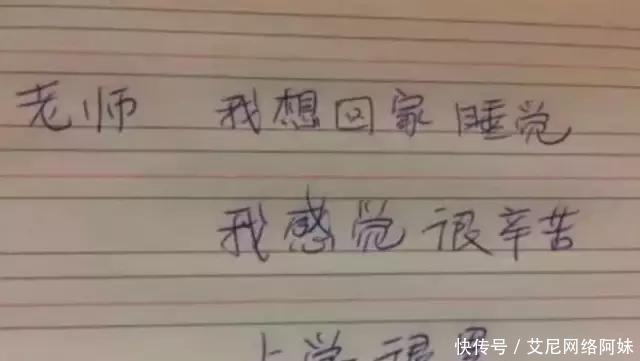 老师 我想回家睡觉
我感觉很辛苦
上学很累
快传号／艾尼网络阿妹